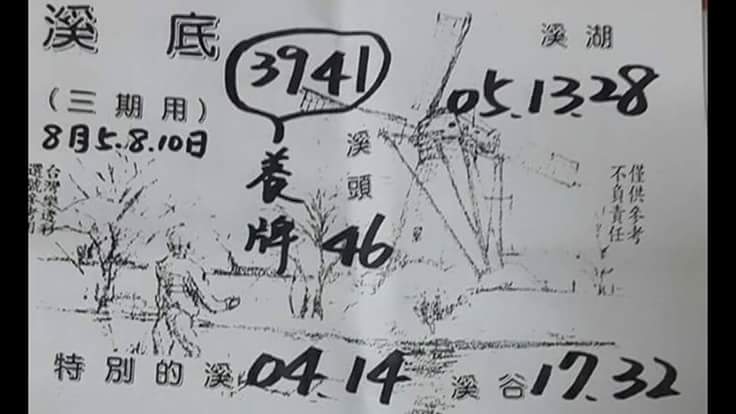 溪底
3941
養牌
溪湖
05.13.28
(三期用)
8月5.8.10日
溪頭
46
僅供參考
不負責任
台灣樂透彩
特別的溪 04.14
溪谷 17.32